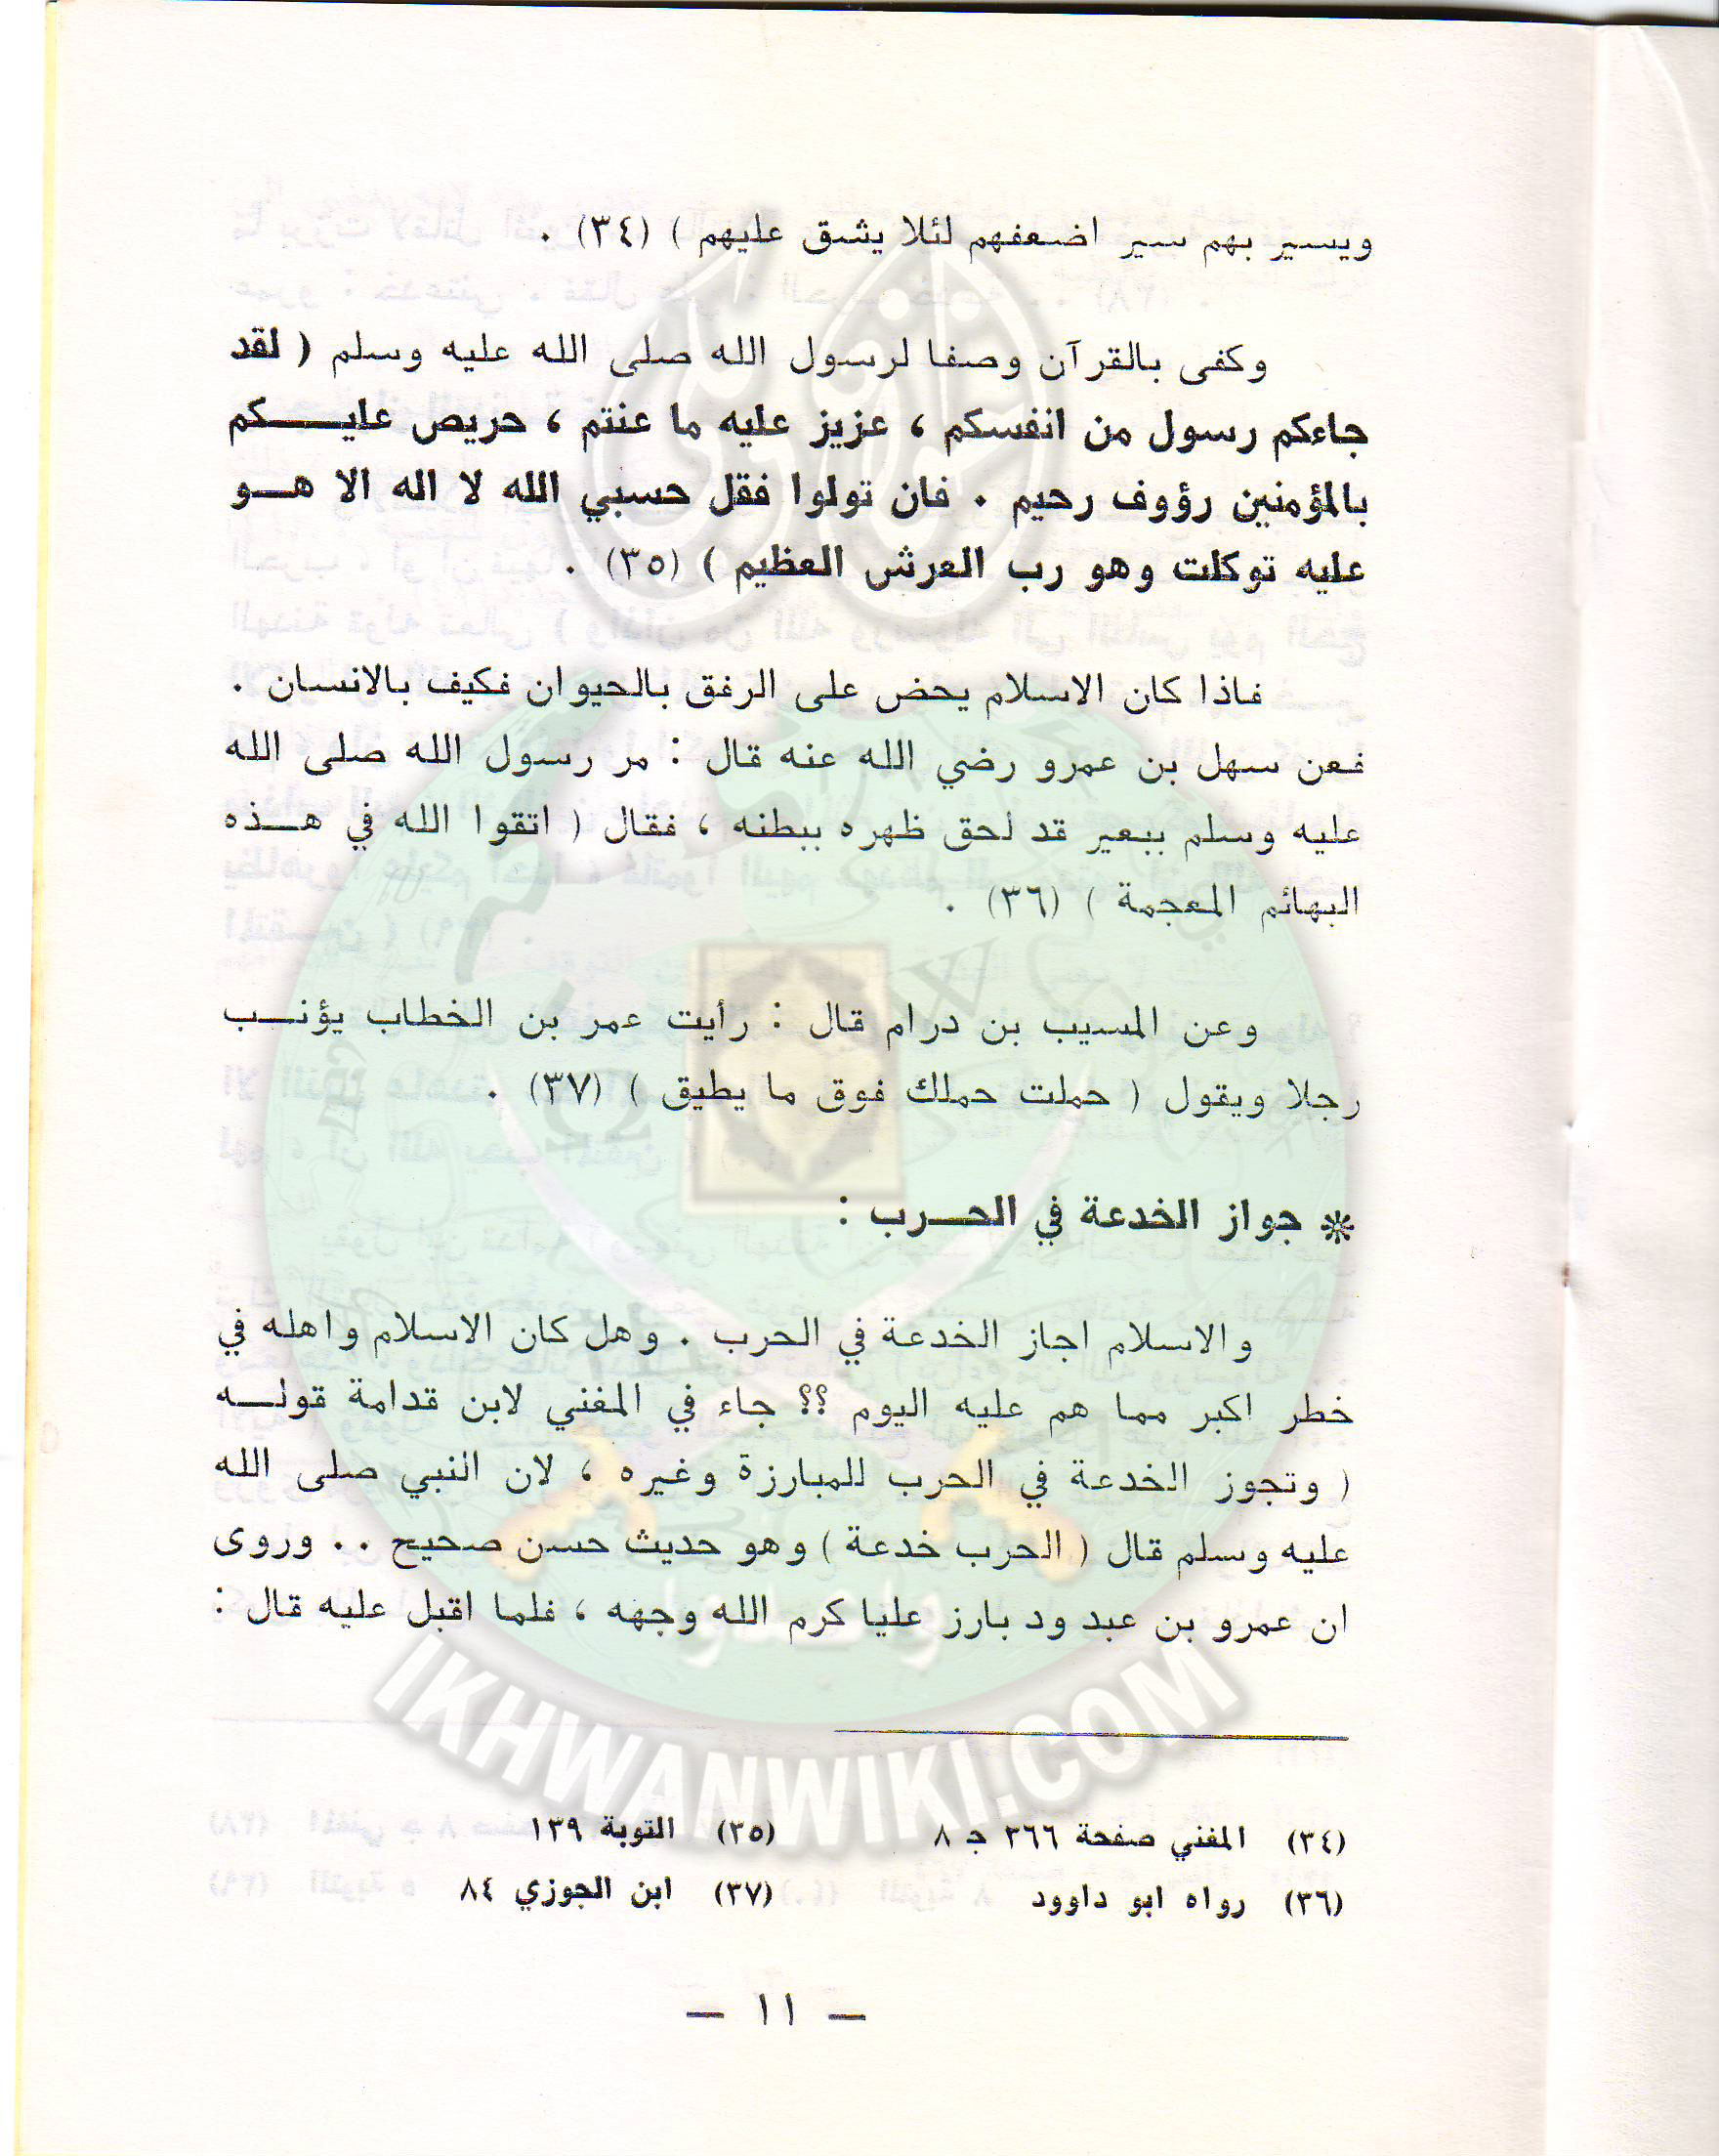 ويسير بهم سير اضعفهم لئلا يشق عليهم ) (٣٤) .
وكفى بالقرآن وصفا لرسول الله صلى الله عليه وسلم ( لقد
جاءكم رسول من انفسكم ، عزيز عليه ما عنتم ، حريص عليكم
بالمؤمنين رؤوف رحيم . فان تولوا فقل حسبي الله لا اله الا هو
عليه توكلت وهو رب العرش العظيم ) (٣٥) .
فاذا كان الاسلام يحض على الرفق بالحيوان فكيف بالانسان .
فعن سهل بن عمرو رضي الله عنه قال : مر رسول الله صلى الله
عليه وسلم ببعير قد لحق ظهره ببطنه ، فقال ( اتقوا الله في هذه
البهائم المعجمة ) (٣٦) .
وعن المسيب بن درام قال : رأيت عمر بن الخطاب يؤنب
رجلا ويقول ( حملت حملك فوق ما يطيق ) (٣٧) .
* جواز الخدعة في الحرب :
والاسلام اجاز الخدعة في الحرب . وهل كان الاسلام واهله في
خطر اكبر مما هم عليه اليوم ؟؟ جاء في المغني لابن قدامة قوله
( وتجوز الخدعة في الحرب للمبارزة وغيره ، لان النبي صلى الله
عليه وسلم قال ( الحرب خدعة ) وهو حديث حسن صحيح .. وروى
ان عمرو بن عبد ود بارز عليا كرم الله وجهه ، فلما اقبل عليه قال :
IKHWANWIKI.COM
(٣٤) المغني صفحة ٣٦٦ ج ٨ (٣٥) التوبة ١٣٩
(٣٦) رواه ابو داوود (٣٧) ابن الجوزي ٨٤
— ١١ —